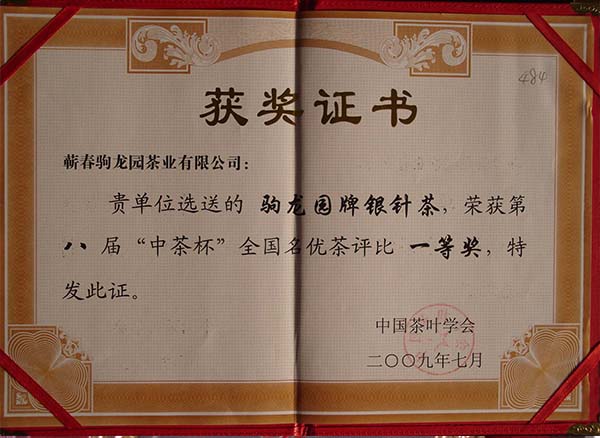 484
获奖证书
蕲春驹龙园茶业有限公司：
贵单位选送的 驹龙园牌银针茶，荣获第
八 届“中茶杯”全国名优茶评比 一等奖，特
发此证。
中国茶叶学会
二〇〇九年七月